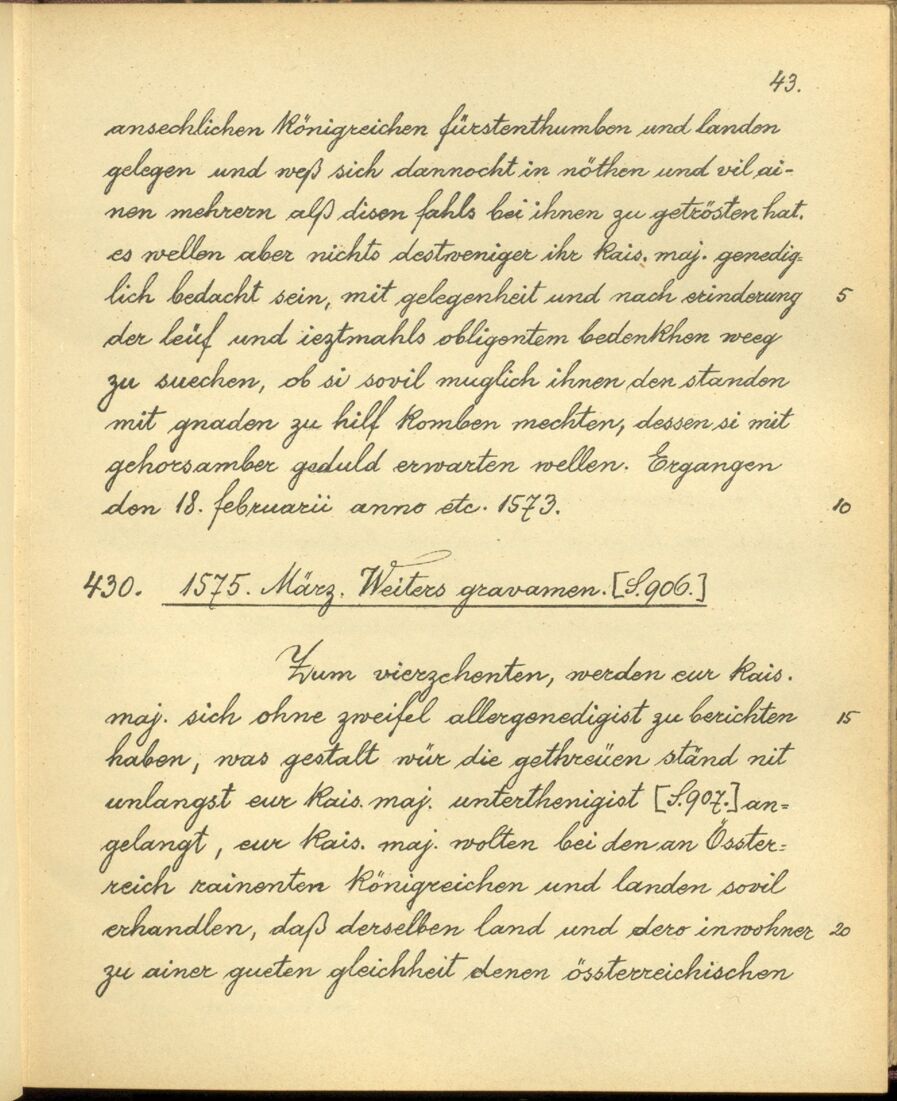 43.
ansechlichen Königreichen fürstenthumben und landen
gelegen und weß sich dannocht in nöthen und vil ai-
nen mehrern alß disen fahls bei ihnen zu getrösten hat.
es wellen aber nichts destweniger ihr kais. maj. genedig=
lich bedacht sein, mit gelegenheit und nach erinderung 5
der leüf und ieztmahls obligentem bedenkhen weeg
zu suechen, ob si sovil muglich ihnen den standen
mit gnaden zu hilf komben mechten, dessen si mit
gehorsamber geduld erwarten wellen. Ergangen
den 18. februarii anno etc. 1573. 10
430. 1575. März. Weiters gravamen. [S. 906.]
Zum vierzehenten, werden eur kais.
maj. sich ohne zweifel allergenedigist zu berichten 15
haben, was gestalt wür die gethreüen ständ nit
unlangst eur kais. maj. unterthenigist [S. 907.] an=
gelangt, eur kais. maj. wolten bei den anÖsster=
reich rainenten Königreichen und landen sovil
erhandlen, daß derselben land und dero inwohner 20
zu ainer gueten gleichheit denen össterreichischen